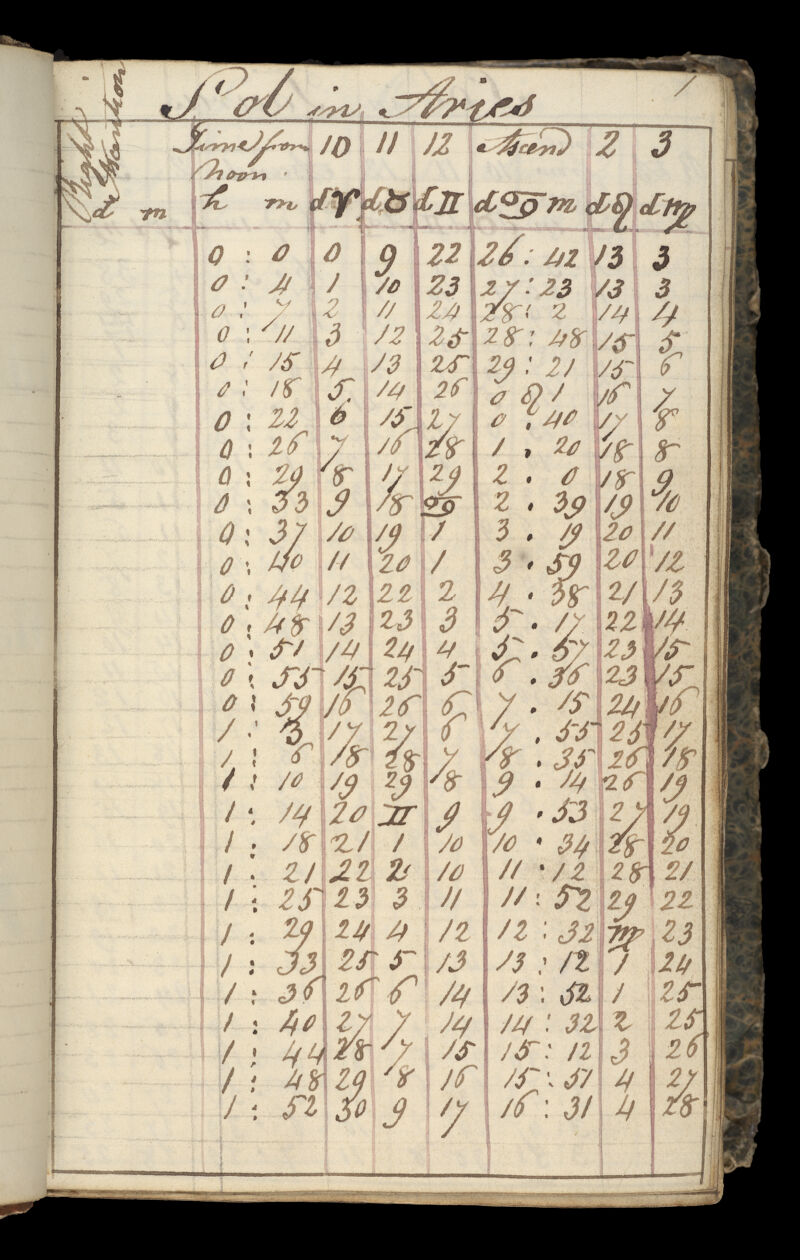 1
Sol in Aries
Right Assention
Time from Noon 10 11 12 Ascend 2 3
d m h m d ♈ d ♉ d ♊ d ♋ m d ♌ d ♍
0 : 0 0 9 22 26 : 42 13 3
0 : 4 1 10 23 27 : 23 13 3
0 : 7 2 11 24 28 : 2 14 4
0 : 11 3 12 25 28 : 48 15 5
0 : 15 4 13 25 29 : 21 15 6
0 : 18 5 14 26 0 ♌ 1 16 7
0 : 22 6 15 27 0 . 40 17 8
0 : 26 7 16 28 1 . 20 18 8
0 : 29 8 17 29 2 . 0 18 9
0 : 33 9 18 ♋ 2 . 39 19 10
0 : 37 10 19 1 3 . 19 20 11
0 : 40 11 20 1 3 . 59 20 12
0 : 44 12 22 2 4 . 38 21 13
0 : 48 13 23 3 5 . 17 22 14
0 : 51 14 24 4 5 . 57 23 15
0 : 55 15 25 5 6 . 36 23 15
0 : 59 16 26 6 7 . 15 24 16
1 : 3 17 27 6 7 . 55 25 17
1 : 6 18 28 7 8 . 35 26 18
1 : 10 19 29 8 9 . 14 26 19
1 : 14 20 ♊ 9 9 . 53 27 19
1 : 18 21 1 10 10 . 34 28 20
1 : 21 22 2 10 11 . 12 28 21
1 : 25 23 3 11 11 : 52 29 22
1 : 29 24 4 12 12 : 32 ♍ 23
1 : 33 25 5 13 13 : 12 1 24
1 : 36 26 6 14 13 : 52 1 25
1 : 40 27 7 14 14 : 32 2 25
1 : 44 28 7 15 15 : 12 3 26
1 : 48 29 8 16 15 : 51 4 27
1 : 52 30 9 17 16 : 31 4 28